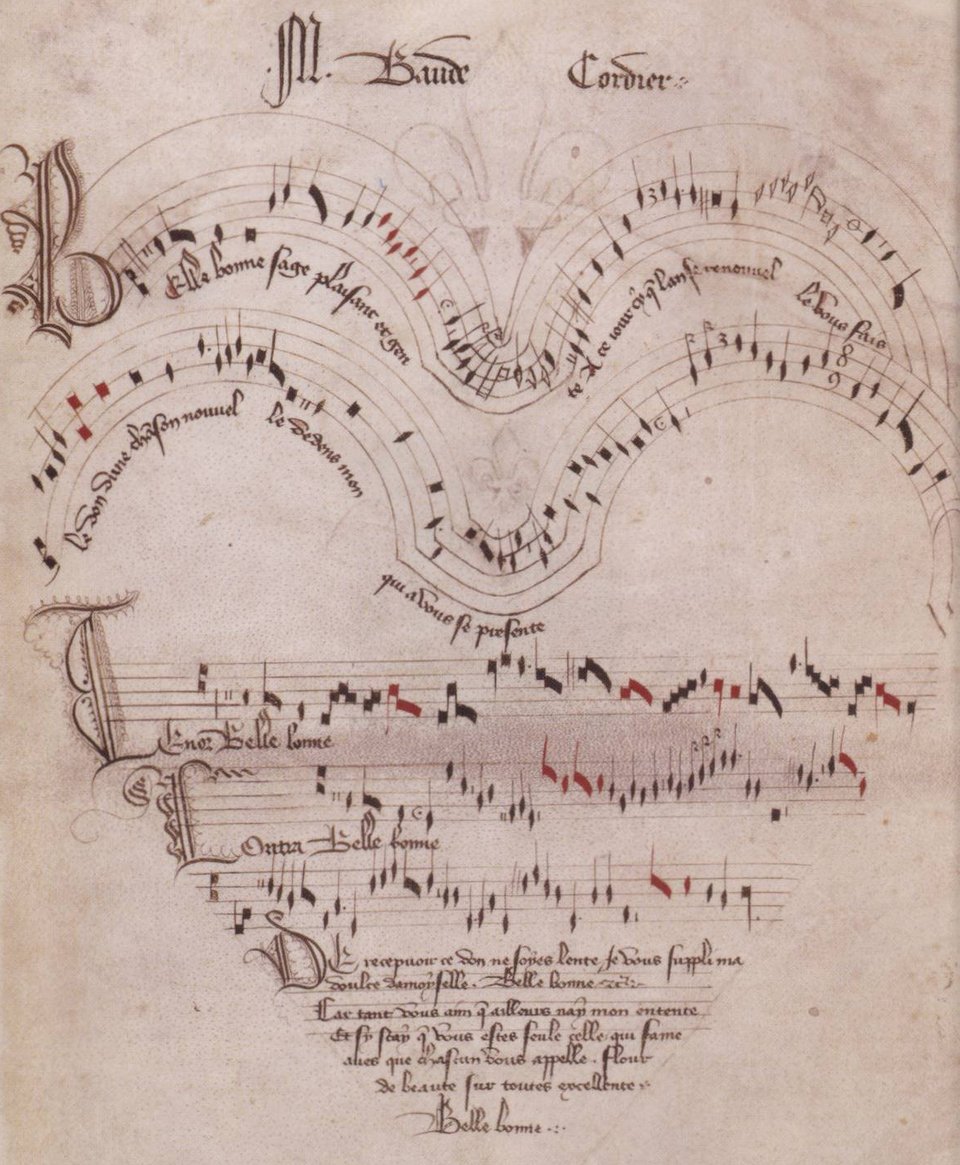 M. Baude Cordier
Belle bonne sage plaisant et gen
te A ce iour cy q̃ lan se renouuel
le vous fais
le don dune chãson nouuel
le dedens mon
qui a vous se presente
Tenor Belle bonne
Contra Belle bonne
DE recepuoir ce don ne soyes lente Je vous suppli ma
doulce damoyselle. Belle bonne
Car tant vous aim q̃ ailleurs nay mon entente
Et sy scay q̃ vous estes seule celle qui fame
aues que chascun vous appelle. Flour
de beaute sur toutes excellente
Belle bonne